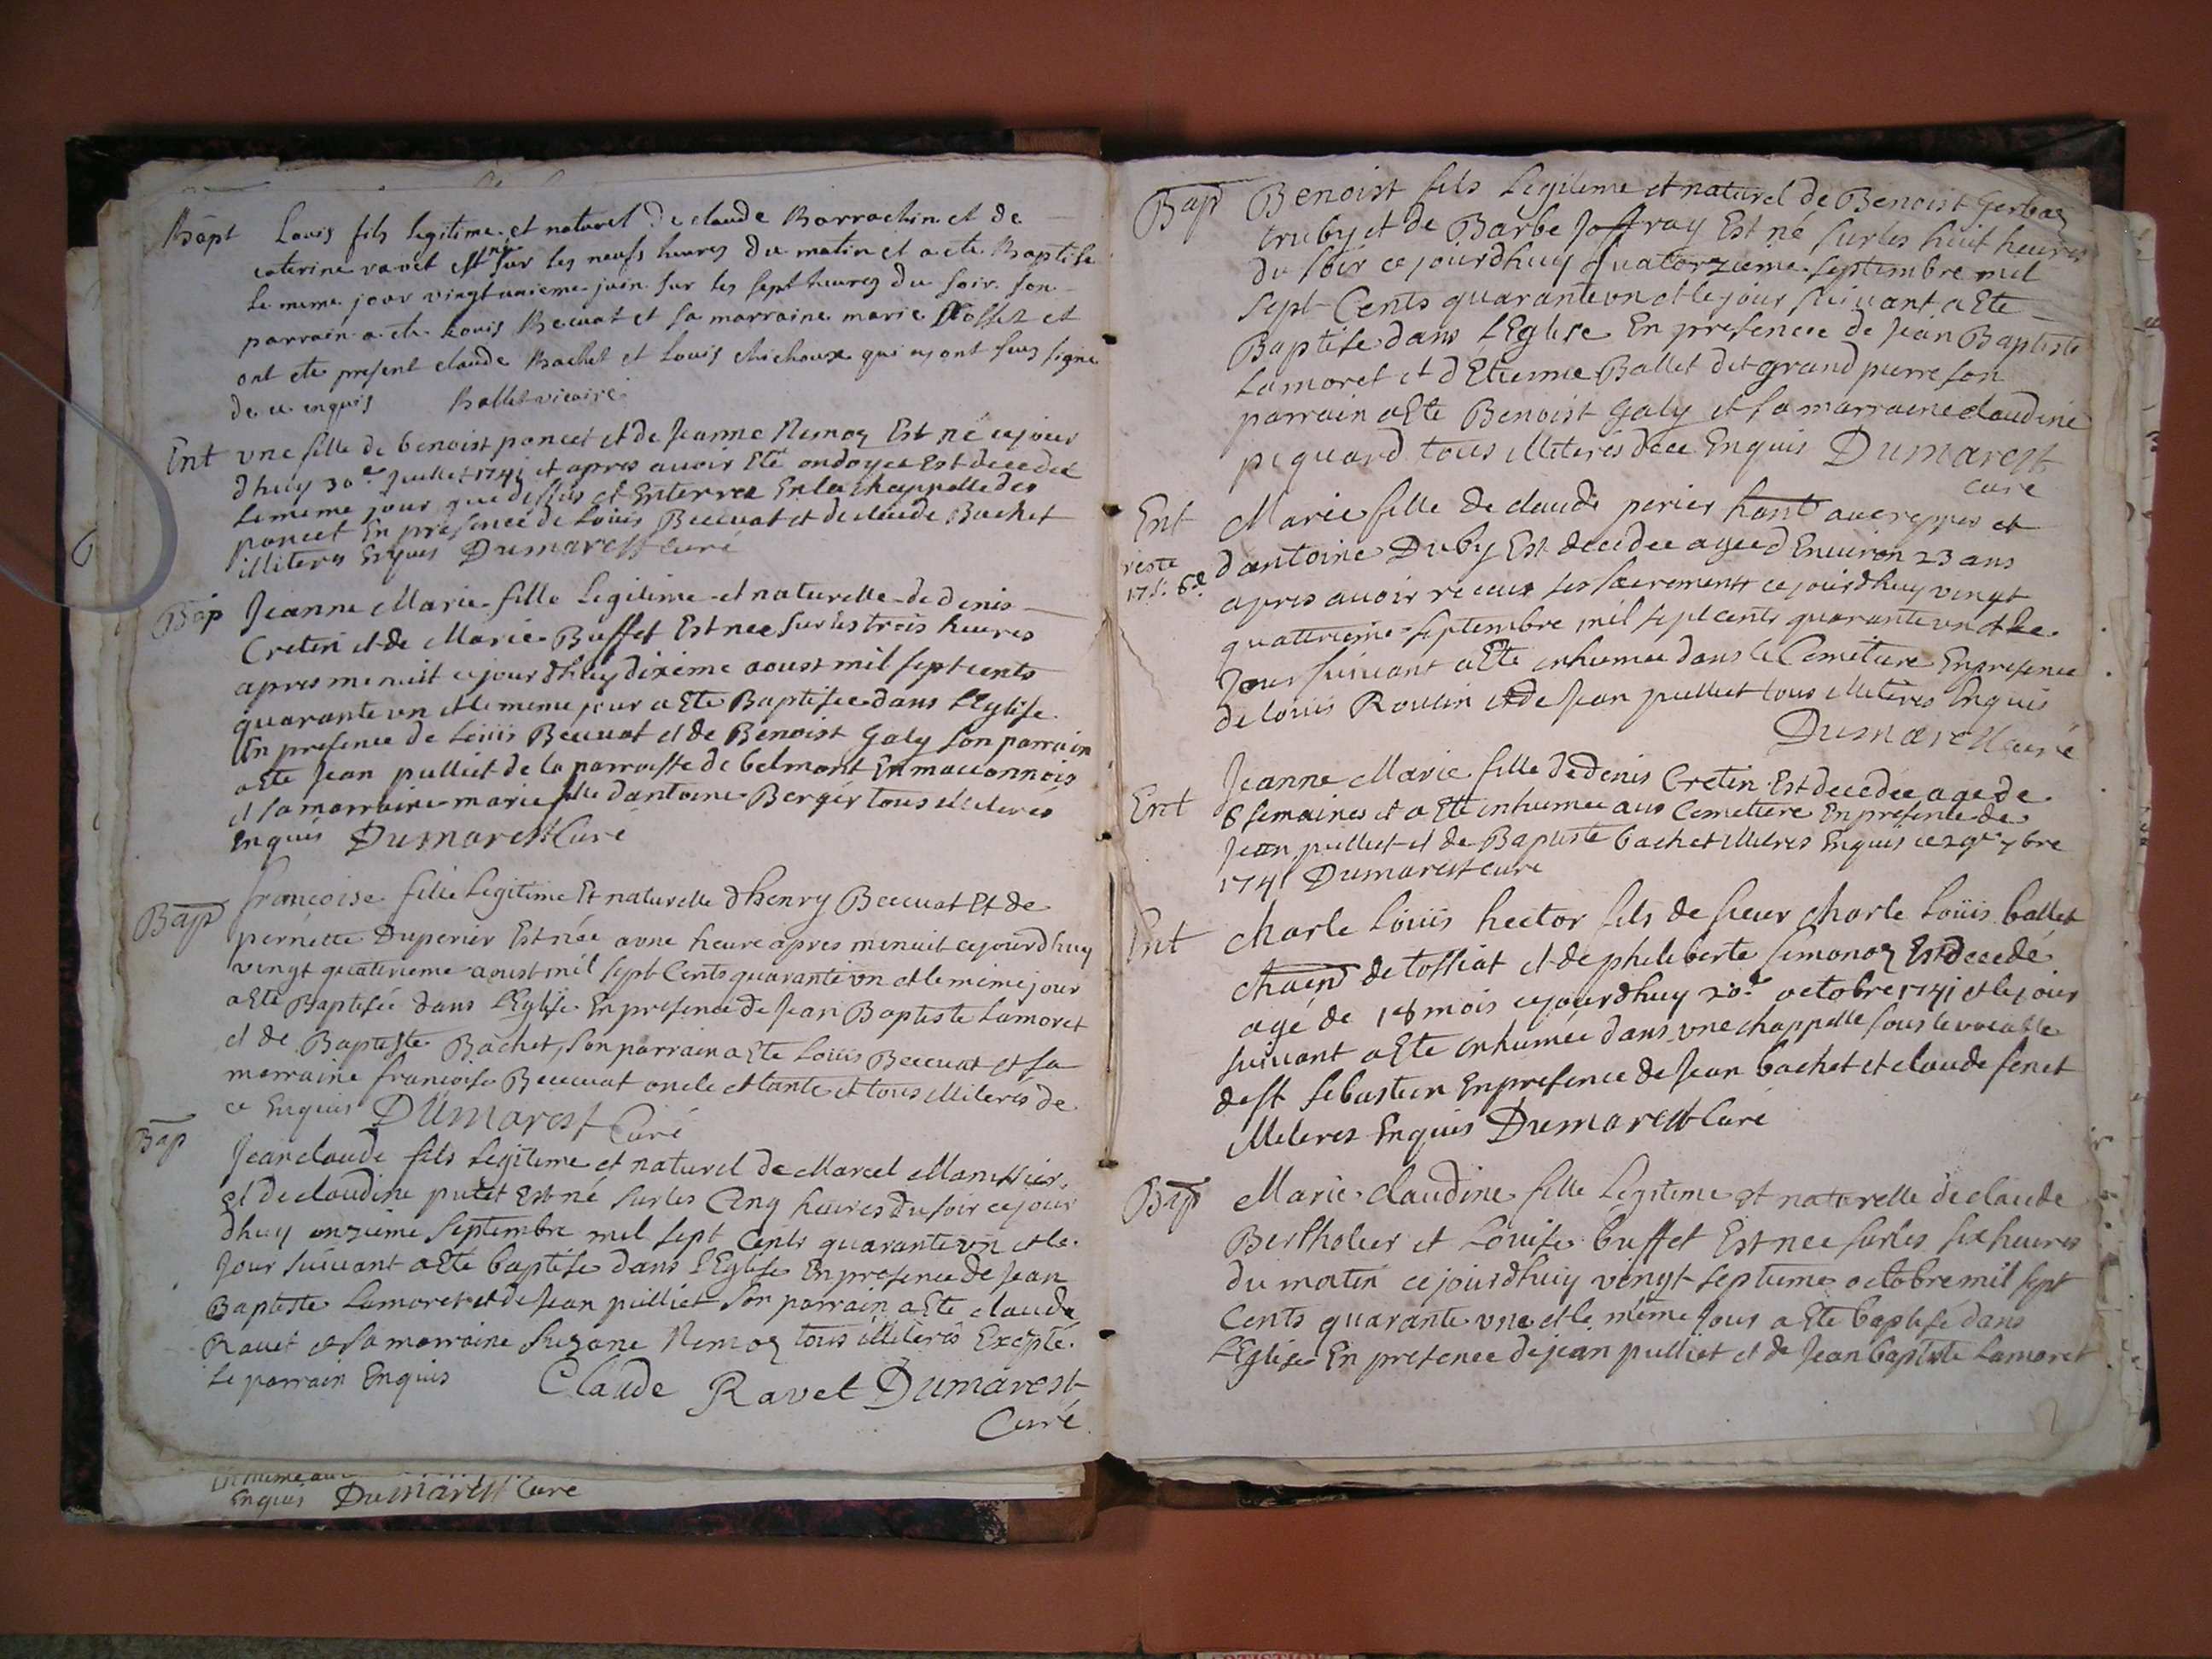 Bapt Louis fils legitime et naturel de claude Barrachin et de
caterine ravet est né sur les neufs heures du matin et a ete Baptise
le meme jour vingt unieme juin sur les sept heures du soir son
parrain a ete Louis Becuat et sa marraine marie et
ont ete present claude Bachet et Louis Michoux qui n'ont seus signe
de ce enquis Ballet vicaire
Ent une fille de benoist poncet et de Jeanne Nemoz Est né cejour
dhuy 30e Juillet 1741 et apres avoir Eté ondoyee Est decedee
le meme jour que dessus et Enterree En la chappelle des
poncet En presence de Louis Beccuat et de claude Bachet
illiteres Enquis Dumarest Curé
Bap Jeanne Marie fille Legitime et naturelle de denis
Cretin et de Marie Buffet Est nee sur les trois heures
apres menuit cejourdhuy dixieme aoust mil sept cents
quarante un et le meme jour a Ete Baptisee dans L'Eglise
En presence de Louis Beccuat et de Benoist Galy son parrain
a Ete Jean pulliet de la parroisse de belmont En maconnois
et sa marraine marie fille dantoine Berger tous illiteres
Enquis Dumarest Curé
Bap francoise fille Legitime Et naturelle dhenry Beccuat Et de
pernette Duperier Est née a une heure apres menuit cejourdhuy
vingt quatrieme aoust mil sept Cents quarante un et le même jour
a Eté Baptisée dans L'Eglise En presence de Jean Baptiste Lamoret
et de Baptiste Bachet, son parrain a Ete Louis Beccuat et sa
marraine francoise Beccuat oncle et tante et tous illiteres de
ce Enquis Dumarest Curé
Bap Jean claude fils Legitime et naturel de Marcel Manissier
et de claudine putet Est né sur les Cinq heures du soir cejour
dhuy onzieme Septembre mil sept Cents quarante un et le
Jour suivant a Ete baptise dans L'Eglise En presence de Jean
Baptiste Lamoret et de Jean pulliet son parrain a Ete claude
Ravet et sa marraine Suzane Nemoz tous illiteres Excepté
le parrain Enquis Claude Ravet Dumarest
Curé
Enquis Dumarest Cure
Bap Benoist fils Legitime et naturel de Benoist Gerbaz
truby et de Barbe Joffray Est né sur les huit heures
du soir ce jourdhuy quatorzieme septembre mil
sept Cents quarante un et le jour suivant a Ete
Baptise dans L'Eglise En presencee de Jean Baptiste
Lamoret et d'Etienne Ballet dit grand pierre son
parrain a Ete Benoist Galy et sa marraine claudine
piquard tous illiteres de ce Enquis Dumarest
curé
Ent Marie fille de claude perier et
dantoine Duby Est decedee agee d Environ 23 ans
reste
17s. 6d.
apres avoir receue les sacrements ce jourdhuy vingt
quatrieme septembre mil sept cents quarante un et le
Jour suivant a Ete inhumee dans le Cemetiere En presence
de Louis Roulin et de Jean pulliet tous illiteres Enquis
Dumarest curé
Ent Jeanne Marie fille de denis Cretin Est decedée agee de
6 semaines et a Ete inhumee aus Cemetiere En presence de
Jean pulliet et de Baptiste bachet illiteres Enquis ce 29e 7bre
1741 Dumarest cure
Ent charle Louis hector fils de sieur charle Louis ballet
de tossiat et de pheleberte simonoz Est decedé
agé de 18 mois cejourdhuy 20e octobre 1741 et le jour
suivant a Ete inhumée dans une chappelle sous le vocable
de st sebastien En presence de Jean bachet et claude fenet
illiteres Enquis Dumarest Curé
Bap Marie claudine fille Legitime et naturelle de claude
Bertholier et Louise buffet Est nee sur les six heures
du matin cejourdhuy vingt septieme octobre mil sept
Cents quarante une et le même Jour a Ete baptise dans
L'Eglise En presence de jean pulliet et de Jean baptiste Lamoret